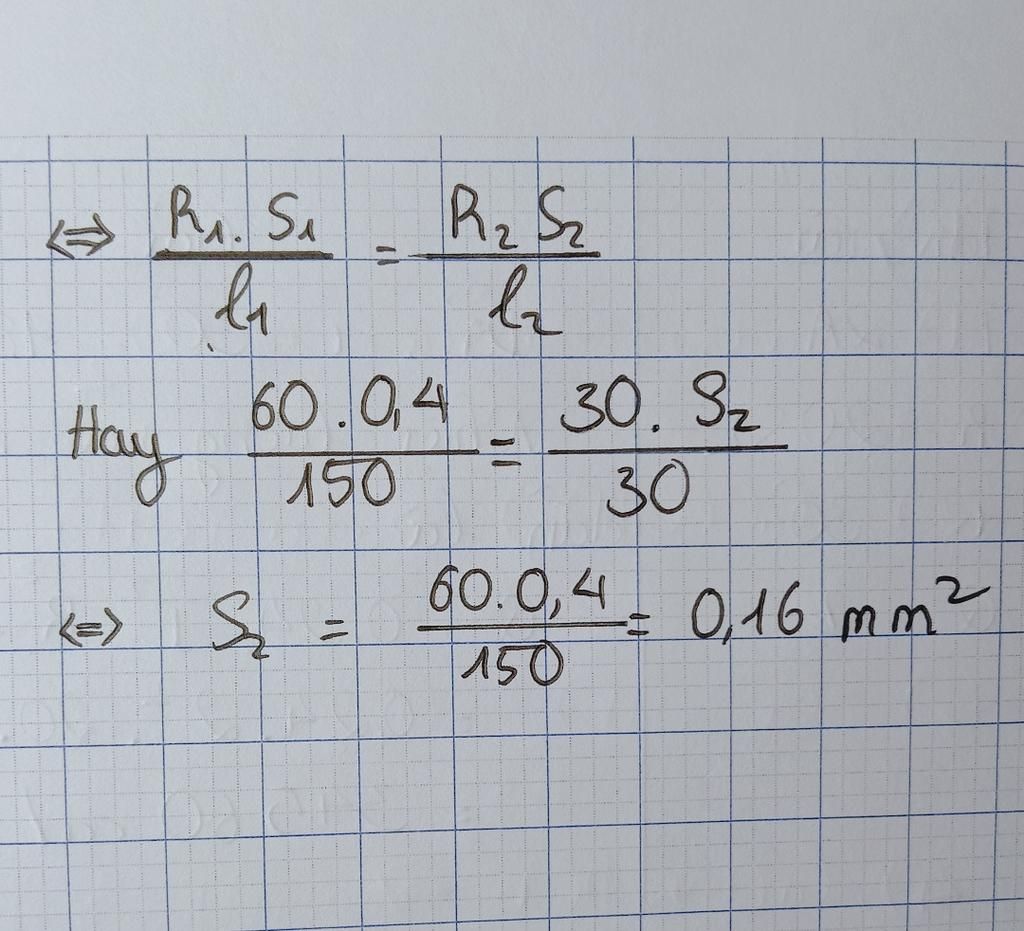 ⇔ R₁. S₁ / l₁ = R₂ S₂ / l₂
Hay 60 . 0,4 / 150 = 30 . S₂ / 30
⇔ S₂ = 60 . 0,4 / 150 = 0,16 mm²